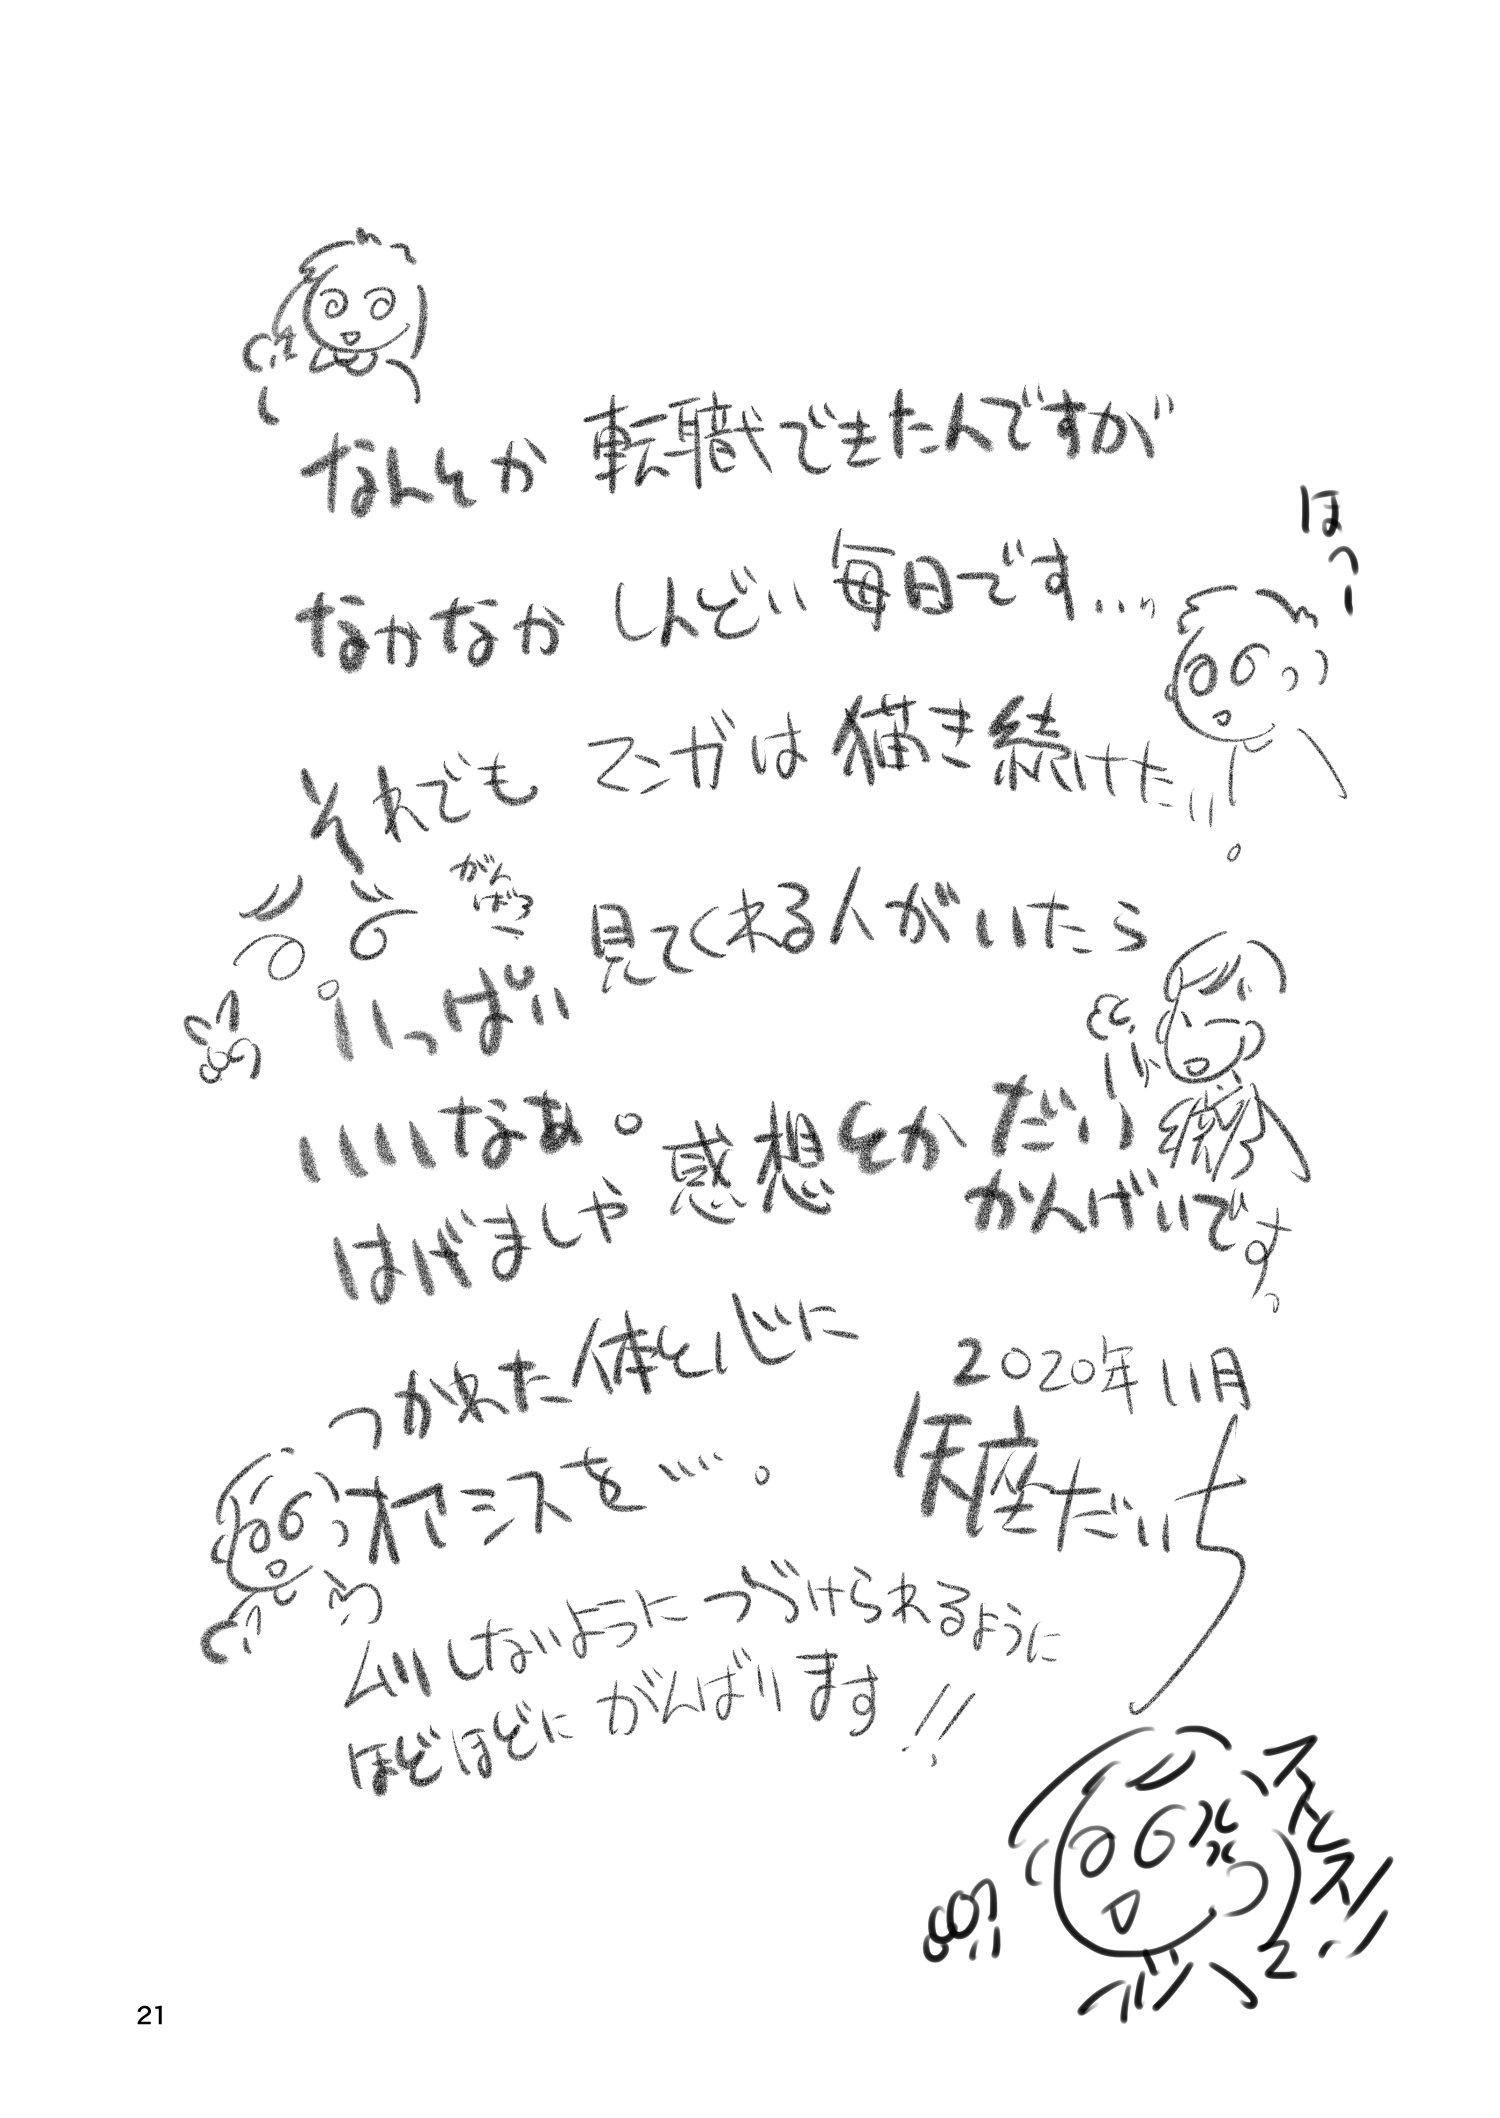 なんとか 転職できたんですが
なかなか しんどい 毎日です...
ほっ
それでも マンガは 描き続けたい。
がん
ばろ
ー
いっぱい 見てくれる人がいたら
いいなぁ。
はげましや 感想とか だい
かんげいです。
つかれた 体と心に
オアシスを……。
2020年11月
矢座だいち
ムリしないように つづけられるように
ほどほどに がんばります!!
ストレス!!
21